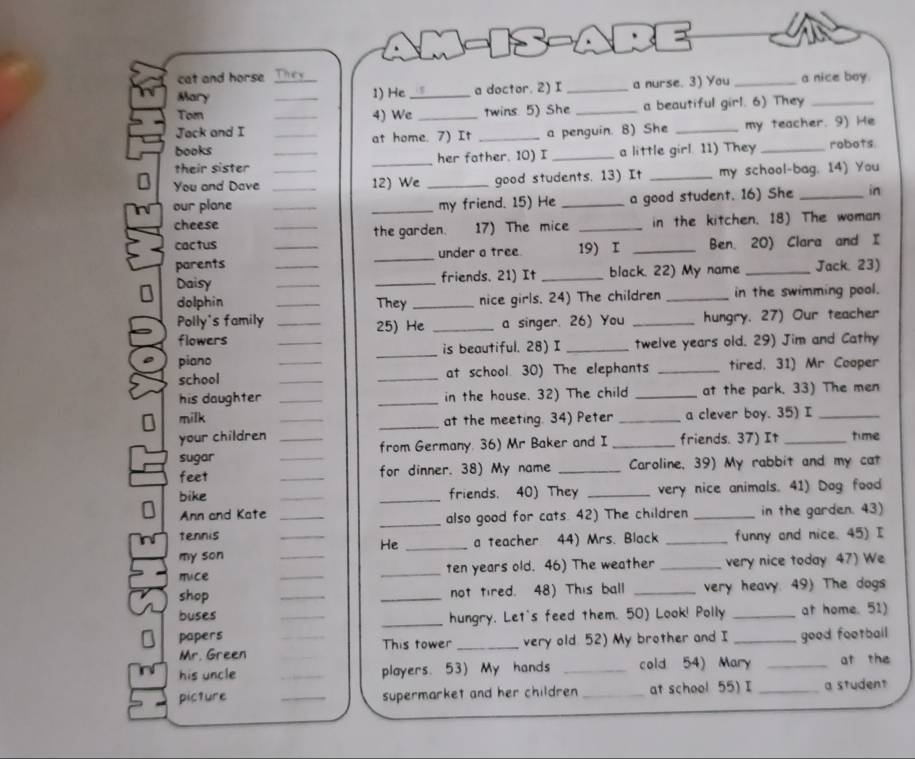 AM-IS-ARE
HE - SHE - IT - YOU - WE - THEY
cat and horse They
Mary ____
Tom ____
Jack and I ____
books ____
their sister ____
You and Dave ____
our plane ____
cheese ____
cactus ____
parents ____
Daisy ____
dolphin ____
Polly's family ____
flowers ____
piano ____
school ____
his daughter ____
milk ____
your children ____
sugar ____
feet ____
bike ____
Ann and Kate ____
tennis ____
my son ____
mice ____
shop ____
buses ____
papers ____
Mr. Green ____
his uncle ____
picture ____
1) He is a doctor. 2) I ______ a nurse. 3) You ______ a nice boy.
4) We ______ twins. 5) She ______ a beautiful girl. 6) They ______
at home. 7) It ______ a penguin. 8) She ______ my teacher. 9) He
______ her father. 10) I ______ a little girl. 11) They ______ robots.
12) We ______ good students. 13) It ______ my school-bag. 14) You
______ my friend. 15) He ______ a good student. 16) She ______ in
the garden. 17) The mice ______ in the kitchen. 18) The woman
______ under a tree. 19) I ______ Ben. 20) Clara and I
______ friends. 21) It ______ black. 22) My name ______ Jack. 23)
They ______ nice girls. 24) The children ______ in the swimming pool.
25) He ______ a singer. 26) You ______ hungry. 27) Our teacher
______ is beautiful. 28) I ______ twelve years old. 29) Jim and Cathy
______ at school. 30) The elephants ______ tired. 31) Mr Cooper
______ in the house. 32) The child ______ at the park. 33) The men
______ at the meeting. 34) Peter ______ a clever boy. 35) I ______
from Germany. 36) Mr Baker and I ______ friends. 37) It ______ time
for dinner. 38) My name ______ Caroline. 39) My rabbit and my cat
______ friends. 40) They ______ very nice animals. 41) Dog food
______ also good for cats. 42) The children ______ in the garden. 43)
He ______ a teacher. 44) Mrs. Black ______ funny and nice. 45) I
______ ten years old. 46) The weather ______ very nice today. 47) We
______ not tired. 48) This ball ______ very heavy. 49) The dogs
______ hungry. Let's feed them. 50) Look! Polly ______ at home. 51)
This tower ______ very old. 52) My brother and I ______ good football
players. 53) My hands ______ cold. 54) Mary ______ at the
supermarket and her children ______ at school. 55) I ______ a student